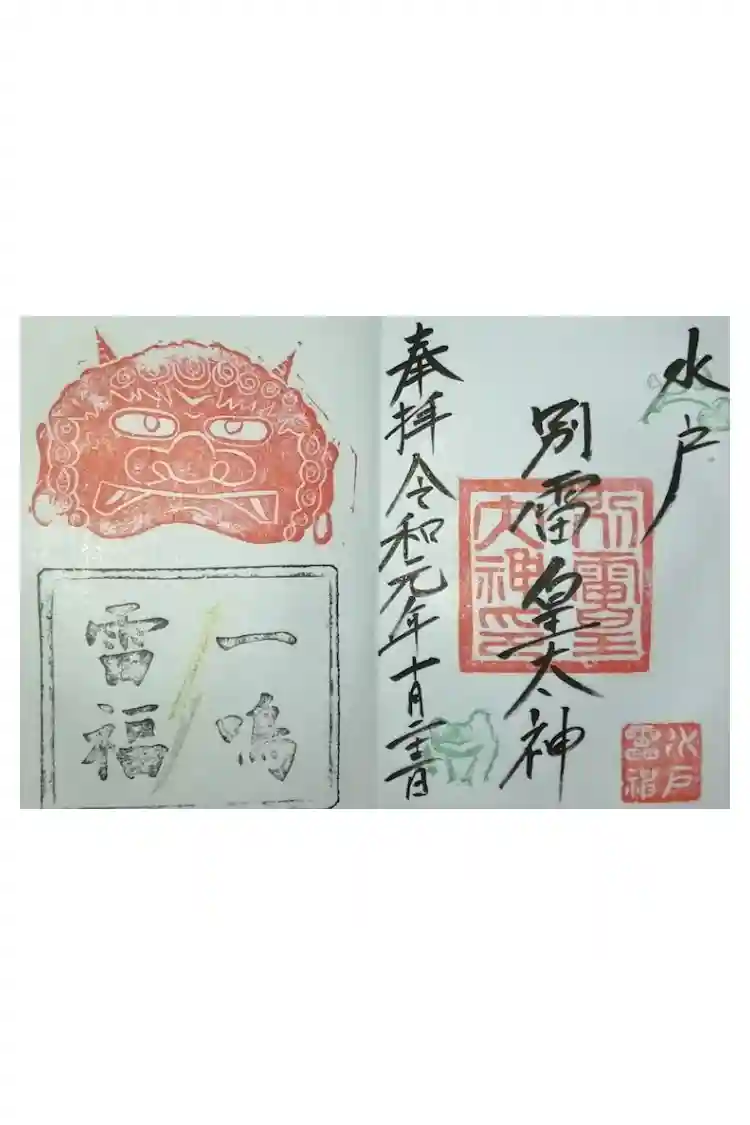 水戸
別雷皇太神
別雷皇
大神印
水戸
奉拝令和元年十月
一鳴
雷福